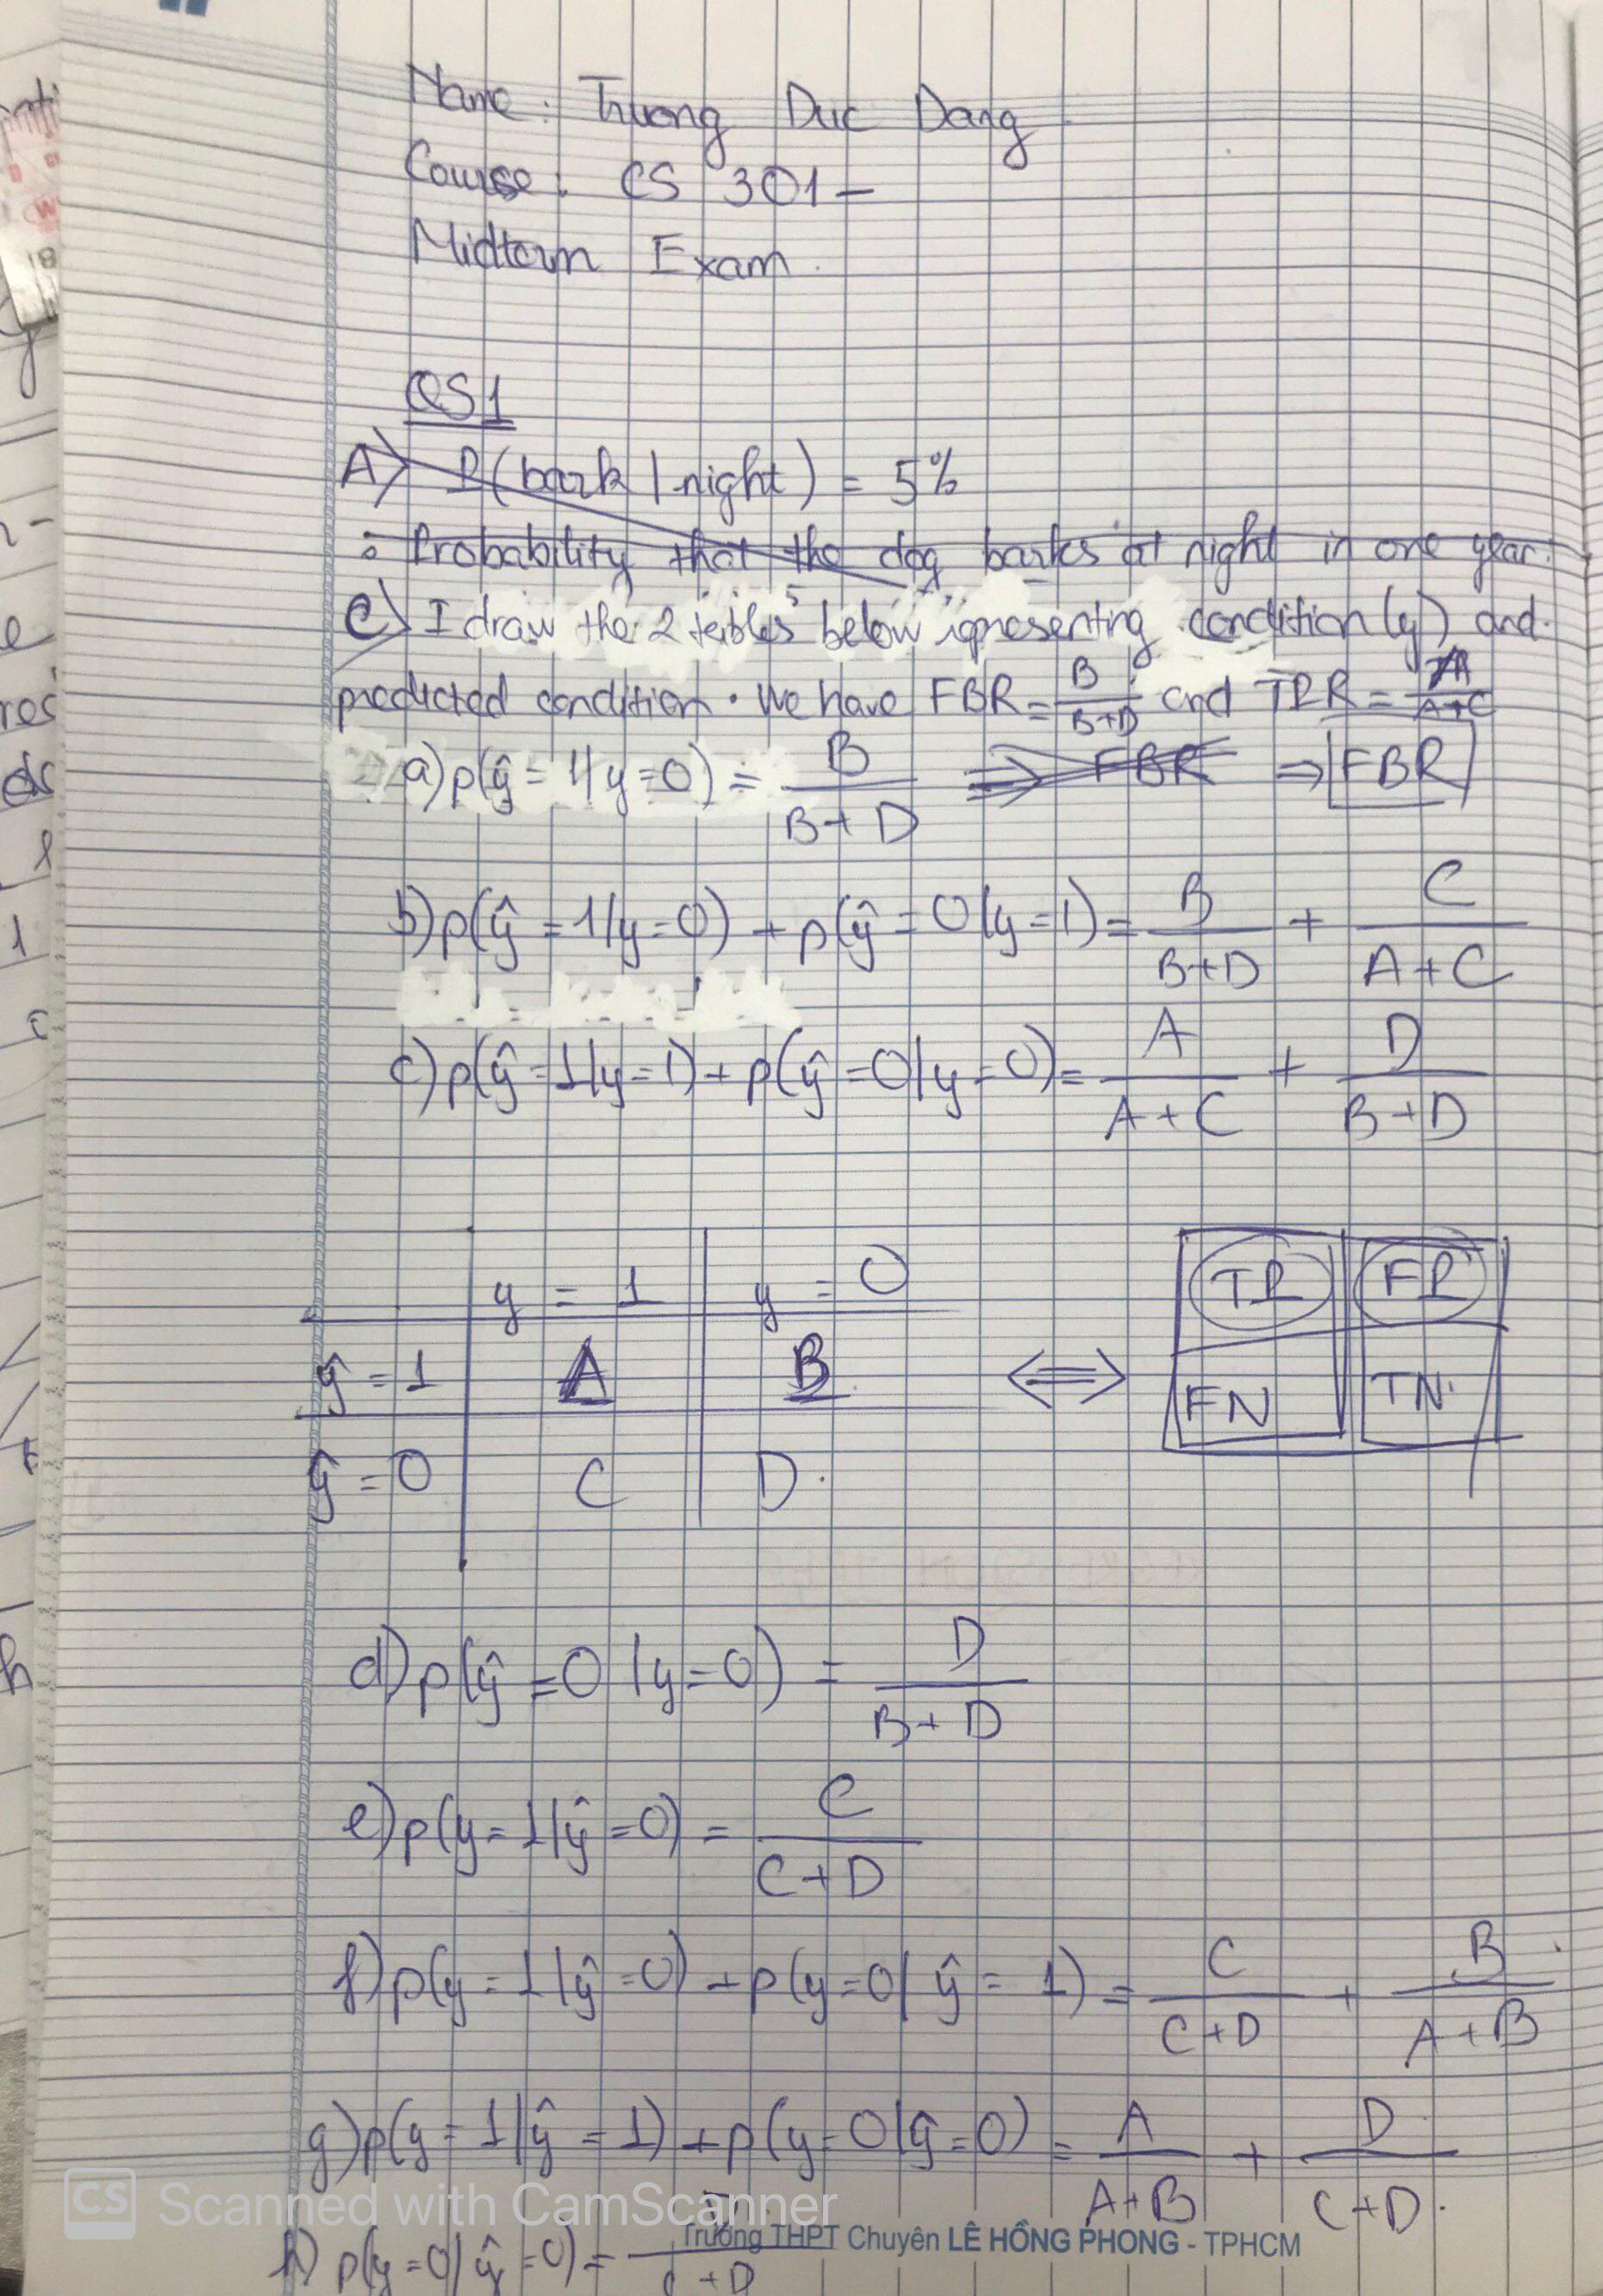 Name: Truong Duc Dang
Course: CS 301-
Midterm Exam.
QS1
A) P(bark | night) = 5%
: Probability that the dog barks at night in one year.
C) I draw the 2 tables below representing condition (y) and
predicted condition. We have FBR = B/(B+D) and TPR = A/(A+C)
a) p(ŷ = 1|y=0) = B/(B+D) ⇒ FBR ⇒ FBR
b) p(ŷ = 1|y=0) + p(ŷ = 0|y=1) = B/(B+D) + C/(A+C)
c) p(ŷ = 1|y=1) + p(ŷ = 0|y=0) = A/(A+C) + D/(B+D)
y = 1 y = 0
ŷ = 1 A B
ŷ = 0 C D.
⇔
TP FP
FN TN
d) p(ŷ = 0|y=0) = D/(B+D)
e) p(y=1|ŷ=0) = C/(C+D)
f) p(y=1|ŷ=0) + p(y=0|ŷ = 1) = C/(C+D) + B/(A+B)
g) p(y=1|ŷ = 1) + p(y=0|ŷ=0) = A/(A+B) + D/(C+D).
CS Scanned with CamScanner
Trường THPT Chuyên LÊ HỒNG PHONG - TPHCM
h) p(y=0|ŷ=0) = D/(C+D)